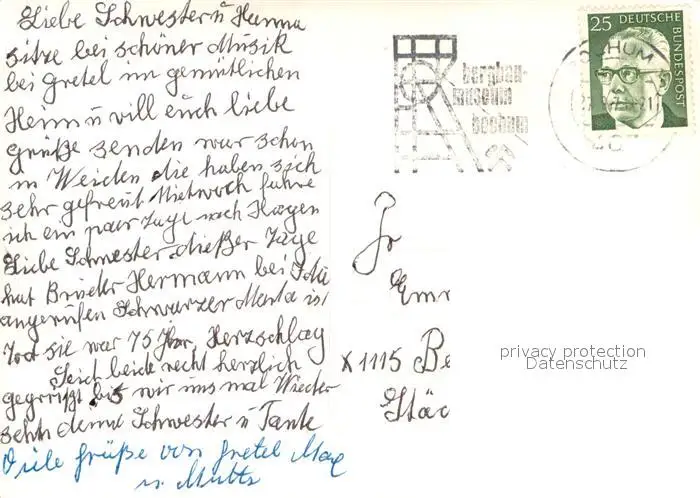 Liebe Schwester u Hanna
sitze bei schöner Musik
bei Gretel im gemütlichen
Heim u will euch liebe
grüße senden war schon
in Weiden die haben sich
sehr gefreut Mietwoch fahre
ich ein paar Tage nach Hagen
Liebe Schwester dießer Tage
hat Bruder Hermann bei
angerufen Schwarzer Marta ist
Tod sie war 75 Jhr, Herzschlag
Seid beide recht herzlich
gegrüßt bis wir uns mal Wieder
sehn deine Schwester u Tante
Viele Grüße von Gretel Max
u. Mutti
bergbau-
museum
bochum
BOCHUM
25 DEUTSCHE
BUNDESPOST
Fr
Emm
X 1115 Be
Stac
privacy protection
Datenschutz